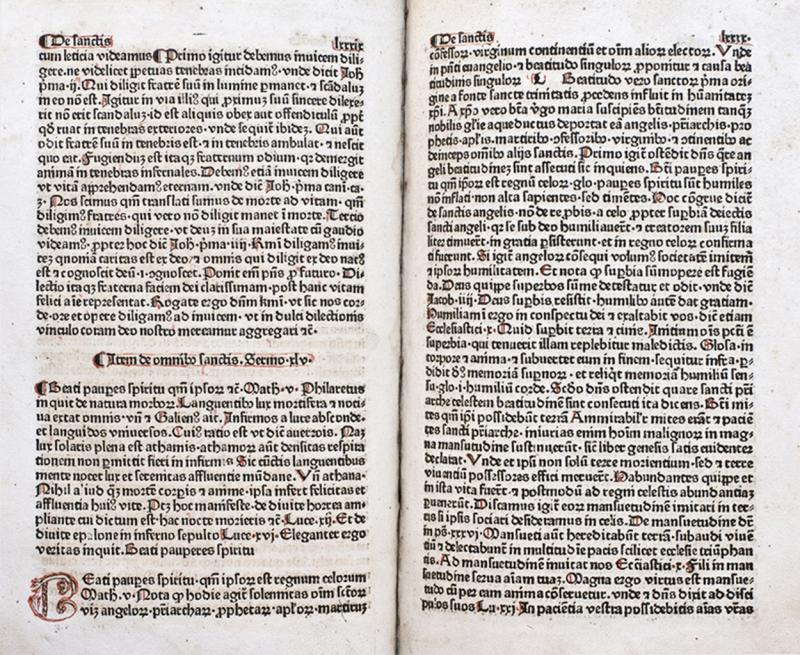 De sanctis
lxxxix
cum leticia videamus Primo igitur debemus inuicem dili
gere. ne videlicet ꝑpetuas tenebras incidamꝰ. vnde dicit Joh̃
pͥma. ij. Qui diligit fratrẽ suũ in lumine ꝑmanet. ⁊ scãdaluꝫ
in eo nõ est. Igitur in via illiꝰ qui ꝓximuꝫ suũ sincere dilexe
rit nõ erit scandaluꝫ. id est aliquis obex aut offendiculũ
ꝙ̃ ruat in tenebras exteriores. vnde sequit̉ ibideꝫ. Qui aũt
odit fratrẽ suũ in tenebris est. ⁊ in tenebris ambulat. ⁊ nescit
quo eat. Fugiendũꝫ est itaqꝫ fraternum odium. qꝛ demergit
animã in tenebras infernales. Debemꝰ etiã inuicem diligere
vt vitã apprehendamꝰ eternam. vnde diẽ Joh̃. pͥma cani. ca.
3. Nos scimus qm̃ translati sumus de morte ad vitam. qm̃
diligimꝰ fratres. qui vero nõ diligit manet ĩ morte. Tertio
debemꝰ inuicem diligere. vt deuꝫ in sua maiestate cũ gaudio
videamꝰ. ꝓpter hoc diẽ Joh̃. pͥma. iiij. Kmi diligamꝰ inui
ceꝫ qm̃ caritas est ex deo. ⁊ omnis qui diligit ex deo natꝰ
est ⁊ cognoscit deũ. Ponit em̃ pñs ꝓ futuro. Di
lectio itaqꝫ fraterna faciem dei clarissimam. post hanc vitam
felici a ie representat. Rogate ergo dñm kmi. vt sic nos cor
de. ore et opere diligamꝰ ad inuicem. vt in dulci dilectionis
vinculo coram deo nostro mereamur aggregari ⁊c̃.
Item de omnibꝰ sanctis. Sermo. xlv.
Beati pauꝑes spiritu qm̃ ipsoꝝ ⁊c̃. Math. v. Philaretus
in quit de natura morboꝝ. Languentibꝰ lux mortifera ⁊ noci
ua extat omnis. vñ ⁊ Galienꝰ ait. Infirmos a luce absconde.
et languidos vniuersos. Cuiꝰ ratio est vt diẽ auerrois. Naꝫ
lux solaris plena est athamis. athamoꝝ aũt densitas respira
tionem non ꝑmittit fieri in infirmis Sic cũctis languentibus
mente nocet lux et serenitas affluentie mũdane. Vñ athana.
Nihil a iud qͣꝫ mortẽ corꝑis ⁊ anime. ipsa infert felicitas et
affluentia huiꝰ vite. Ptꝫ hoc manifeste. de diuite horrea am
pliante cui dictum est. hac nocte morieris ⁊c̃. Luce. xij. Et de
diuite epulone in inferno sepulto Luce. xvj. Eleganter ergo
veritas inquit. Beati pauperes spiritu
BEati pauꝑes spiritu. qm̃ ipsoꝝ est regnum celorum
Math. v. Nota ꝙ hodie agit̉ solennitas oĩm sctõꝝ
viꝫ angeloꝝ. pr̃iarchaꝝ. ꝓphetaꝝ. apl̃oꝝ. martiruꝫ
De sanctis
lxxx.
cõfessoꝝ. virginum continentiũ et oĩm alioꝝ electoꝝ. Vnde
in pñti euangelio. ⁊ beatitudo singuloꝝ ꝓponitur ⁊ causa bea
titudinis singuloꝝ Beatitudo vero sanctoꝝ pͥma ori
gine a fonte sancte trinitatis ꝓcedens influit in hũanitateꝫ
xp̃i. A xp̃o vero bt̃a v̉go maria suscipiẽs bt̃itudinem tanqͣꝫ
nobilis gl̃ie aqueductus deportat eã angelis. pr̃iarchis. pro
phetis. apl̃is. martiribꝰ. ꝯfessoribꝰ. virginibꝰ. ⁊ ꝯtinentibꝰ ac
deinceps omnibꝰ alijs sanctis. Primo igit̉ ostẽdit dñs
geli beatitudineꝫ sint assecuti sic inquiens. Bt̃i pauꝑes spiri
tu qm̃ ipoꝝ est regnũ celoꝝ. glo. pauꝑes spiritu sũt humiles
nõ inflati. non alta sapientes. sed timẽtes. Hoc cõgrue dicit̉
de sanctis angelis. nõ de re ꝓbis. a celo ꝓpter suꝑbiã deiectis
sancti angeli. qꝛ se sub deo humiliauerũt. ⁊ creatorem suuꝫ filia
liter timuerũt. in gratia ꝑsisterunt. et in regno celoꝝ confirma
ti fuerunt. Si igit̉ angeloꝝ cõsequi volumꝰ societatẽ imitem̃
⁊ ipsoꝝ humilitatem. Et nota ꝙ suꝑbia sũmopere est fugiẽ
da. Deus quippe superbos sũme detestatur et odit. vnde diẽ
Jacob. iiij. Deus suꝑbis resistit. humilibꝰ aũtẽ dat gratiam.
Humiliamĩ ergo in conspectu dei ⁊ exaltabit vos. diẽ etiam
Ecclesiastici. x. Quid suꝑbit terra ⁊ cinis. Initium oĩs pctĩ ẽ
superbia. qui tenuerit illam replebitur maledictis. Glosa. in
corpore ⁊ anima. ⁊ subuertet eum in finem. sequitur infra. ꝑ
didit dꝰ memoriã suꝑboꝝ. et reliqͥt memoriã humiliũ sen
su. glo. i. humiliũ corde. Scd̃o dñs ostendit quare sancti pr̃i
arche celestem beatitudinẽ sint consecuti ita dicens. Bt̃i mi
tes qm̃ ip̃i possidebũt terrã Ammirabilr̃ mites erãt ⁊ paciẽ
tes sancti pr̃iarche. iniurias enim hoĩm malignoꝝ in mag
na mansuetudine sustinuerũt. sic̃ liber genesis satis euidenter
declarat. Vnde et ipsi non solũ terre morientium. sed ⁊ terre
viuentiũ possessores effici meruerũt. Habundantes quippe et
in ista vita fuerũt. ⁊ postmodũ ad regni celestis abundantiaꝫ
ꝑuenerũt. Discamus igit̉ eoꝝ mansuetudinẽ imitari in ter
ris si ipsis sociari desideramus in celis. De mansuetudine dẽ
in ps̃. xxxvj. Mansueti aũt hereditabũt terrã. subaudi viuẽ
tiũ ⁊ delectabunt̉ in multitudĩe pacis scilicet ecclesie triũphan
tis. Ad mansuetudinẽ inuitat nos Ecclĩastici. x. Fili in man
suetudine serua aĩam tuaꝫ. Magna ergo virtus est mansue
tudo cũ per eam anima cõseruetur. vnde ⁊ dñs dixit ad disci
pulos suos Lu. xxj. In paciẽtia vestra possidebitis aĩas vr̃as